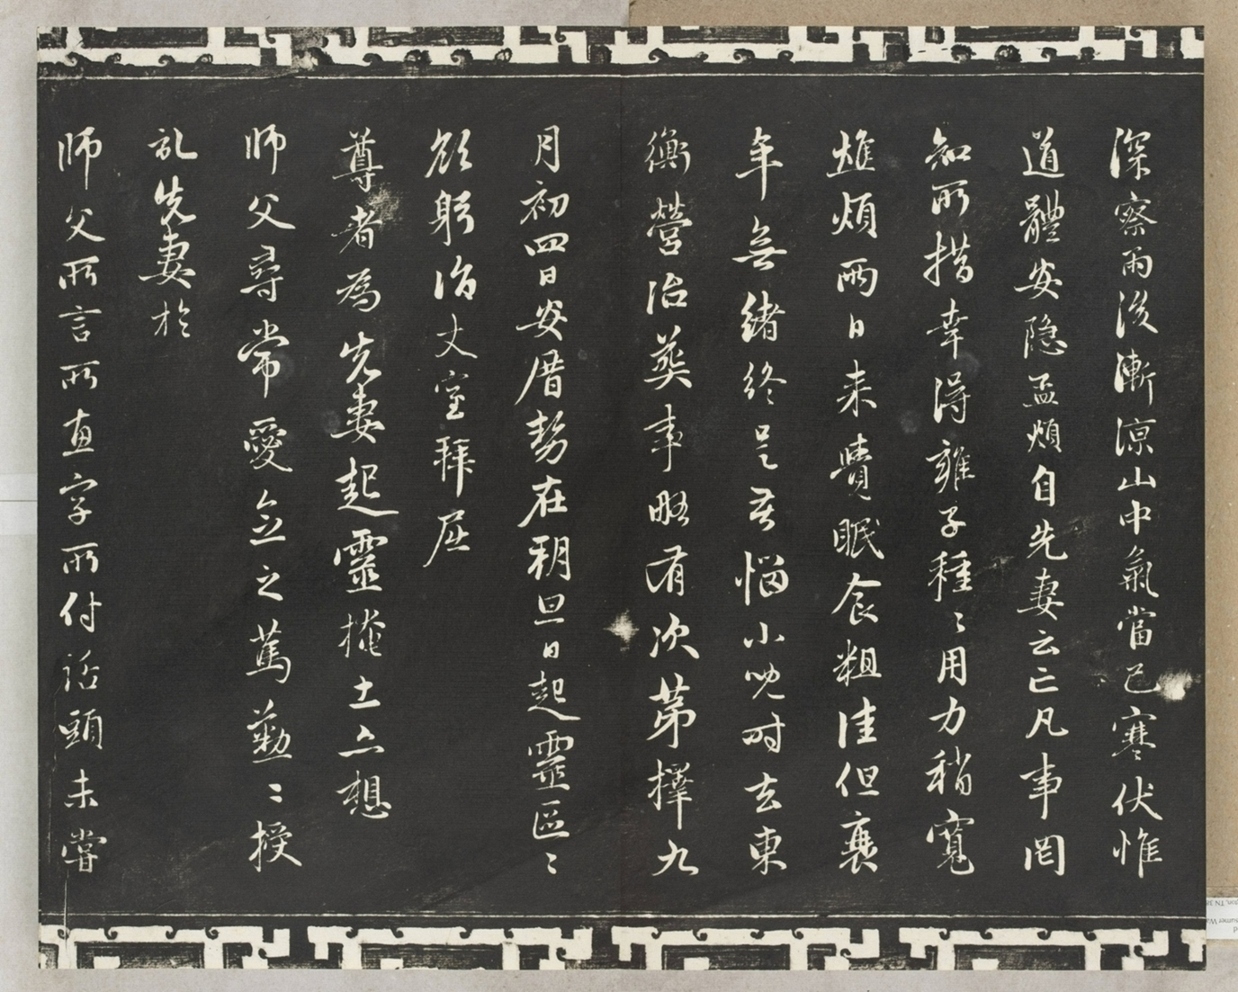 深察雨後漸涼山中氣當已寒伏惟
道體安隱孟頫自先妻云亡凡事罔
知所措幸得雍子種〻用力稍寬
焦煩兩日来覺眠食粗佳但衰
年無緒終是苦惱小兒時去東
衡營治葬事略有次第擇九
月初四日安厝勢在朔旦日起靈區〻
欲躬詣丈室拜屈
尊者為先妻起靈掩土亦想
師父尋常愛念之篤勤〻授
記先妻於
師父所言所畫字所付話頭未嘗